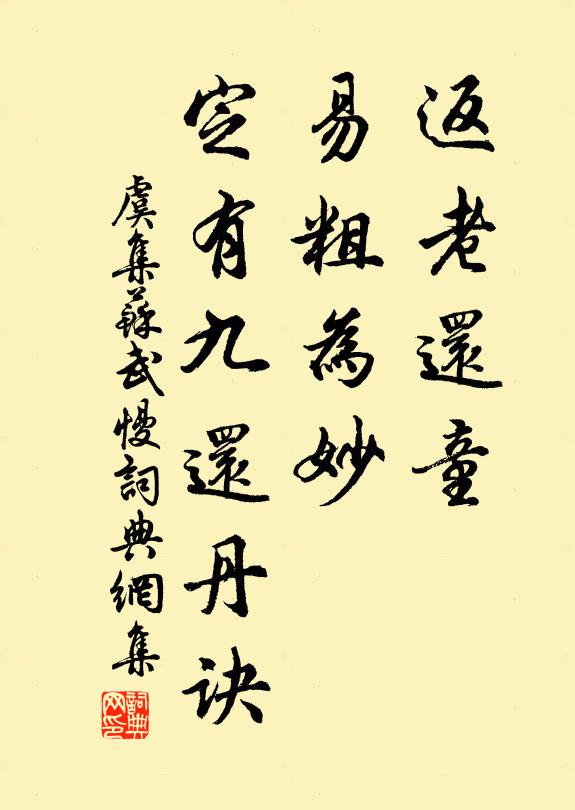 返老還童
易粗為妙
定有九還丹訣
虞集蘇武慢詞典網集
詞典網印